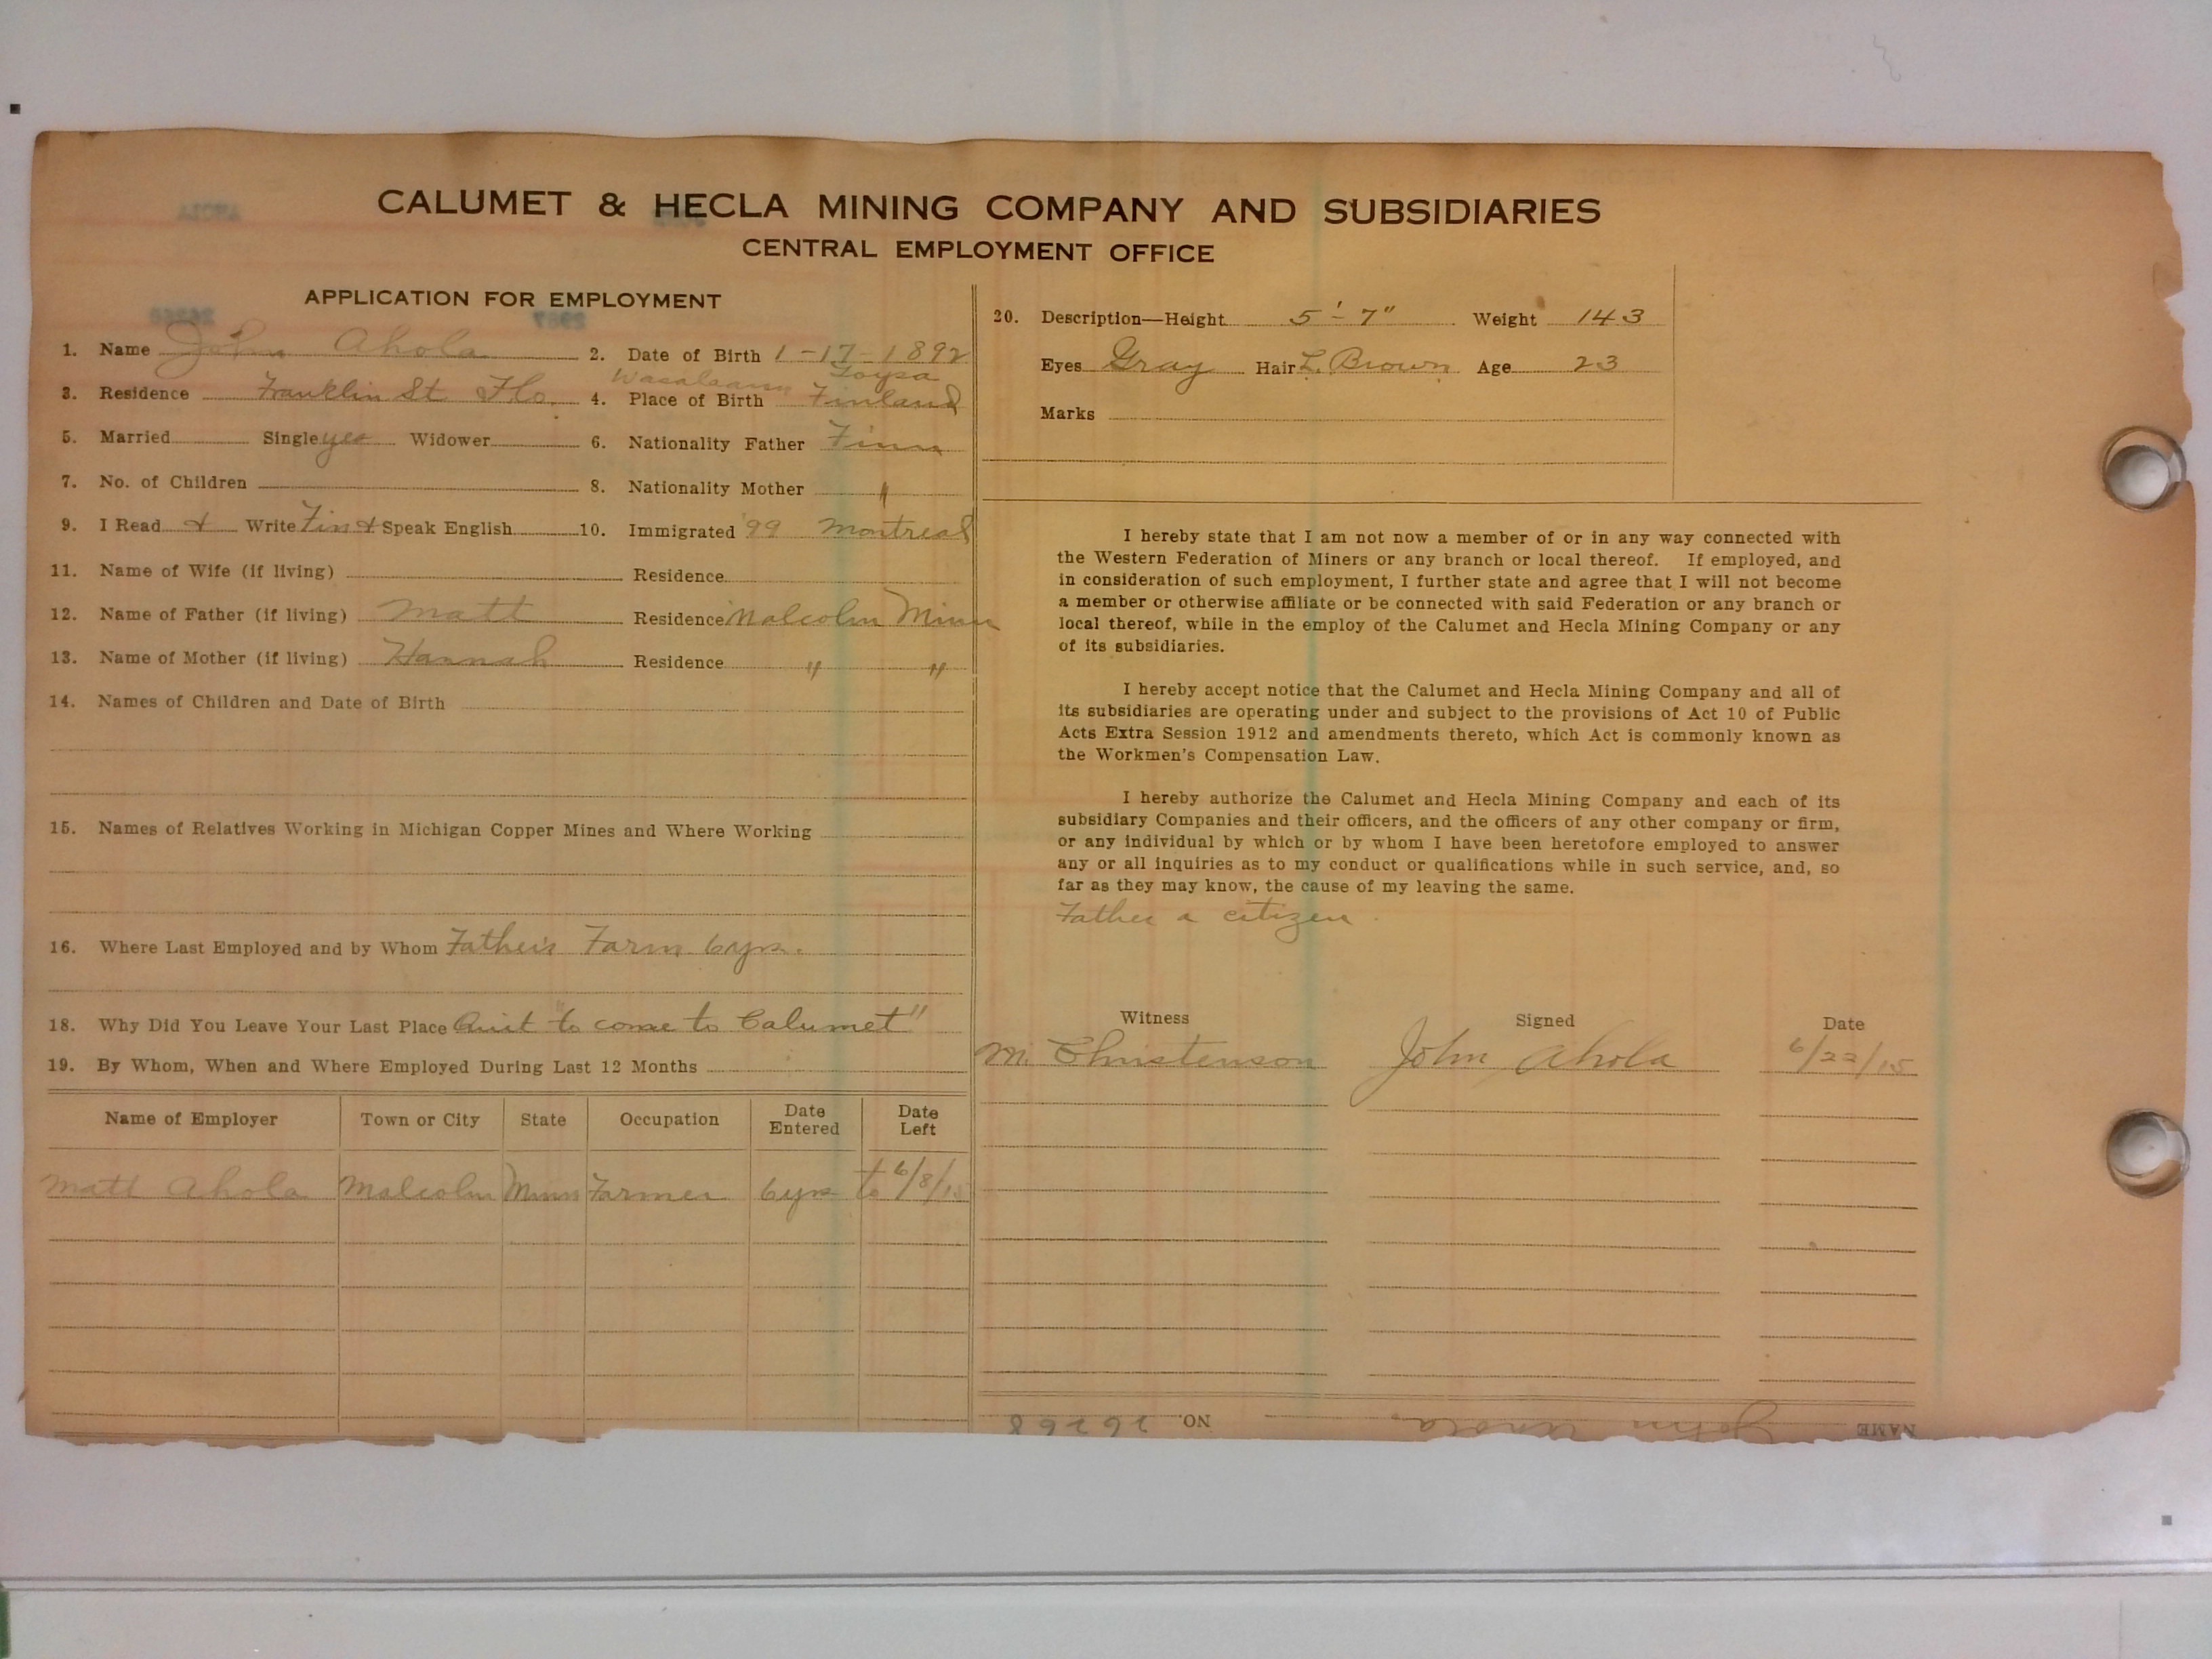 CALUMET & HECLA MINING COMPANY AND SUBSIDIARIES
CENTRAL EMPLOYMENT OFFICE
APPLICATION FOR EMPLOYMENT
1. Name John Ahola 2. Date of Birth 1-17-1892
Toysa
3. Residence Franklin St Flo. 4. Place of Birth Finland
5. Married Single yes Widower 6. Nationality Father Finn
7. No. of Children 8. Nationality Mother "
9. I Read & Write Fin & Speak English 10. Immigrated '99 Montreal
11. Name of Wife (if living) Residence
12. Name of Father (if living) Matt Residence Malcolm Minn
13. Name of Mother (if living) Hannah Residence " "
14. Names of Children and Date of Birth
15. Names of Relatives Working in Michigan Copper Mines and Where Working
16. Where Last Employed and by Whom Father's Farm 6 yrs.
18. Why Did You Leave Your Last Place Quit "to come to Calumet"
19. By Whom, When and Where Employed During Last 12 Months
Name of Employer Town or City State Occupation Date Entered Date Left
Matt Ahola Malcolm Minn Farmer 6 yrs to 6/8/15
20. Description—Height 5'-7" Weight 143
Eyes Gray Hair L. Brown Age 23
Marks
I hereby state that I am not now a member of or in any way connected with
the Western Federation of Miners or any branch or local thereof. If employed, and
in consideration of such employment, I further state and agree that I will not become
a member or otherwise affiliate or be connected with said Federation or any branch or
local thereof, while in the employ of the Calumet and Hecla Mining Company or any
of its subsidiaries.
I hereby accept notice that the Calumet and Hecla Mining Company and all of
its subsidiaries are operating under and subject to the provisions of Act 10 of Public
Acts Extra Session 1912 and amendments thereto, which Act is commonly known as
the Workmen's Compensation Law.
I hereby authorize the Calumet and Hecla Mining Company and each of its
subsidiary Companies and their officers, and the officers of any other company or firm,
or any individual by which or by whom I have been heretofore employed to answer
any or all inquiries as to my conduct or qualifications while in such service, and, so
far as they may know, the cause of my leaving the same.
Father a citizen.
Witness Signed Date
M. Christenson John Ahola 6/22/15
NAME John Ahola NO. 26268